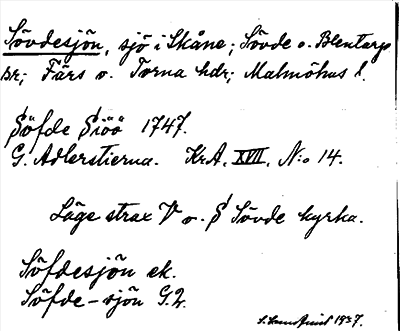 Sövdesjön, sjö i Skåne; Sövde o. Blentarp
sr; Färs o. Torna hdr; Malmöhus l.
Söfde Siöö 1747.
G. Adlerstierna. KrA. XVII. N:o 14.
Läge strax V o. S Sövde kyrka.
Söfdesjön ek.
Söfde-sjön G.2.
1937.